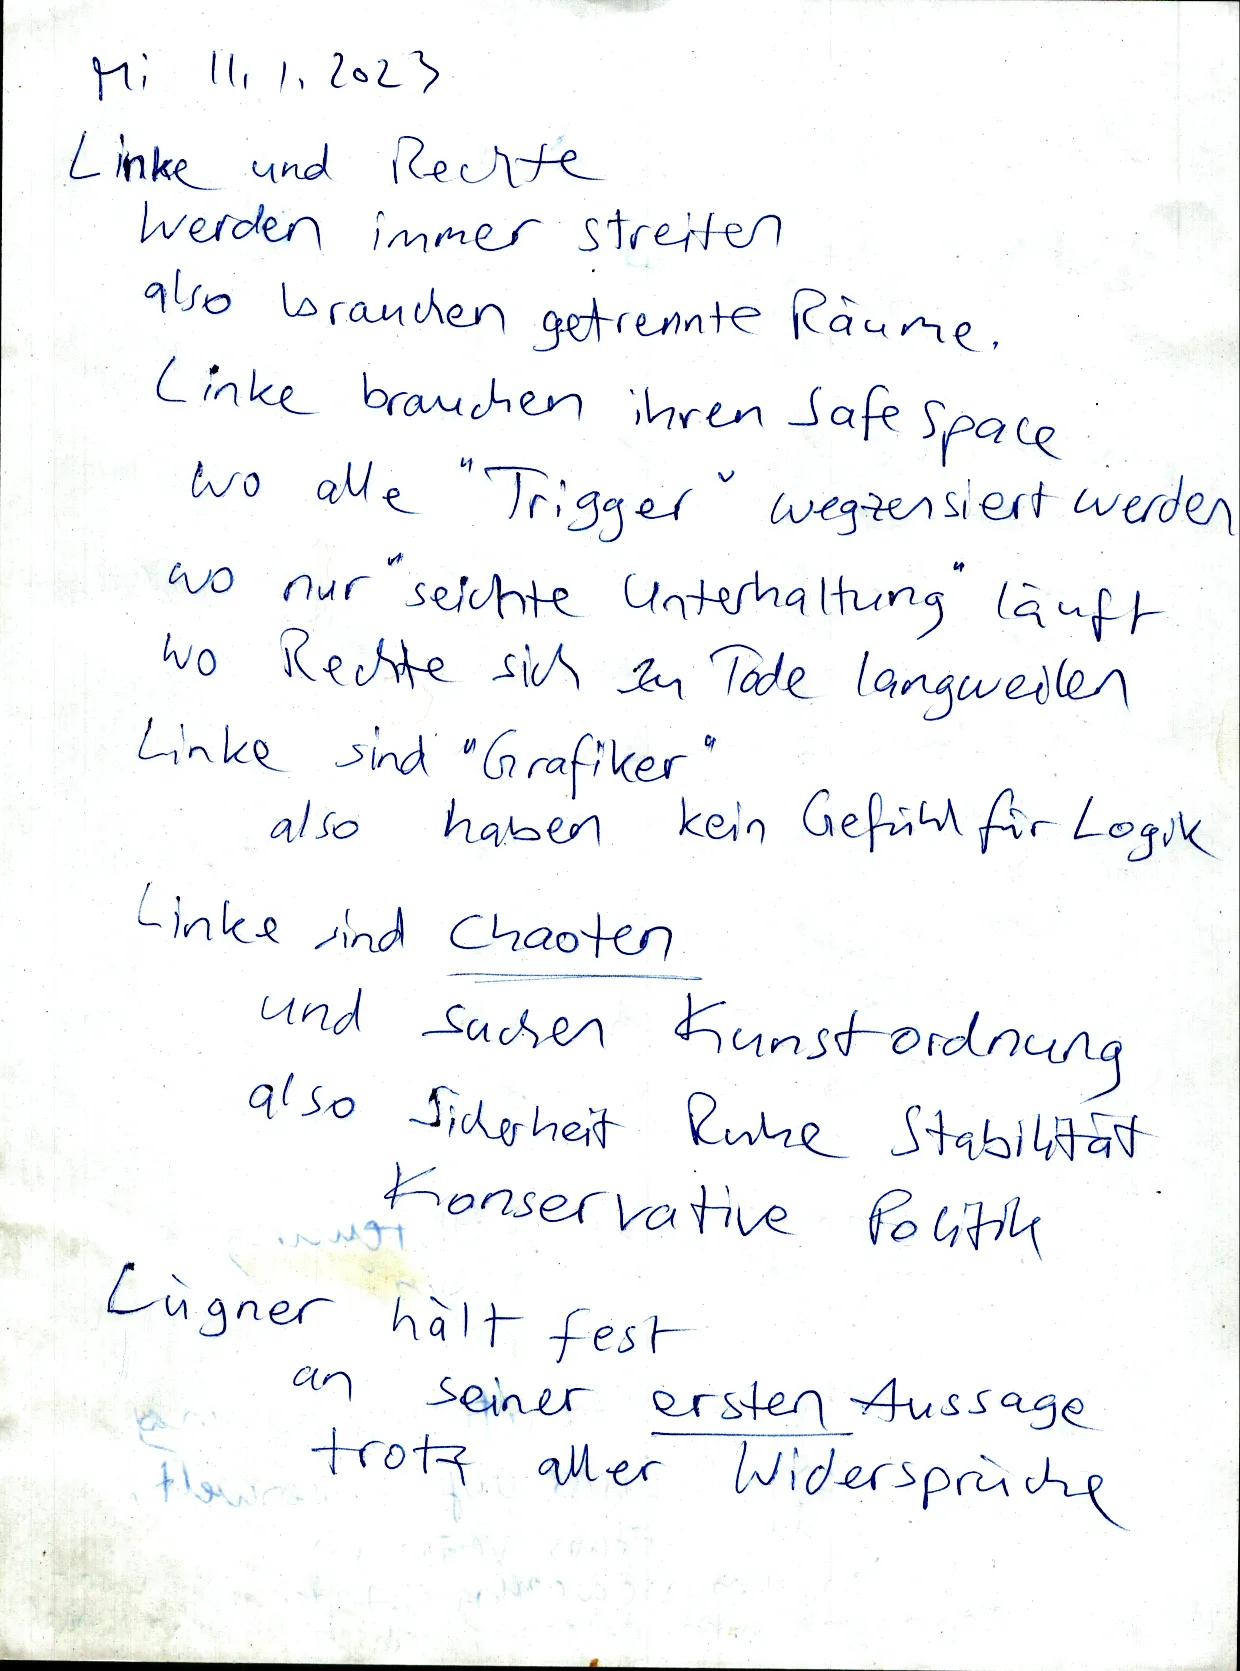 Mi 11.1.2023
Linke und Rechte
werden immer streiten
also brauchen getrennte Räume.
Linke brauchen ihren Safe Space
wo alle "Trigger" wegzensiert werden
wo nur "seichte Unterhaltung" läuft
wo Rechte sich zu Tode langweilen
Linke sind "Grafiker"
also haben kein Gefühl für Logik
Linke sind Chaoten
und suchen Kunstordnung
also Sicherheit Ruhe Stabilität
Konservative Politik
Lügner hält fest
an seiner ersten Aussage
trotz aller Widersprüche